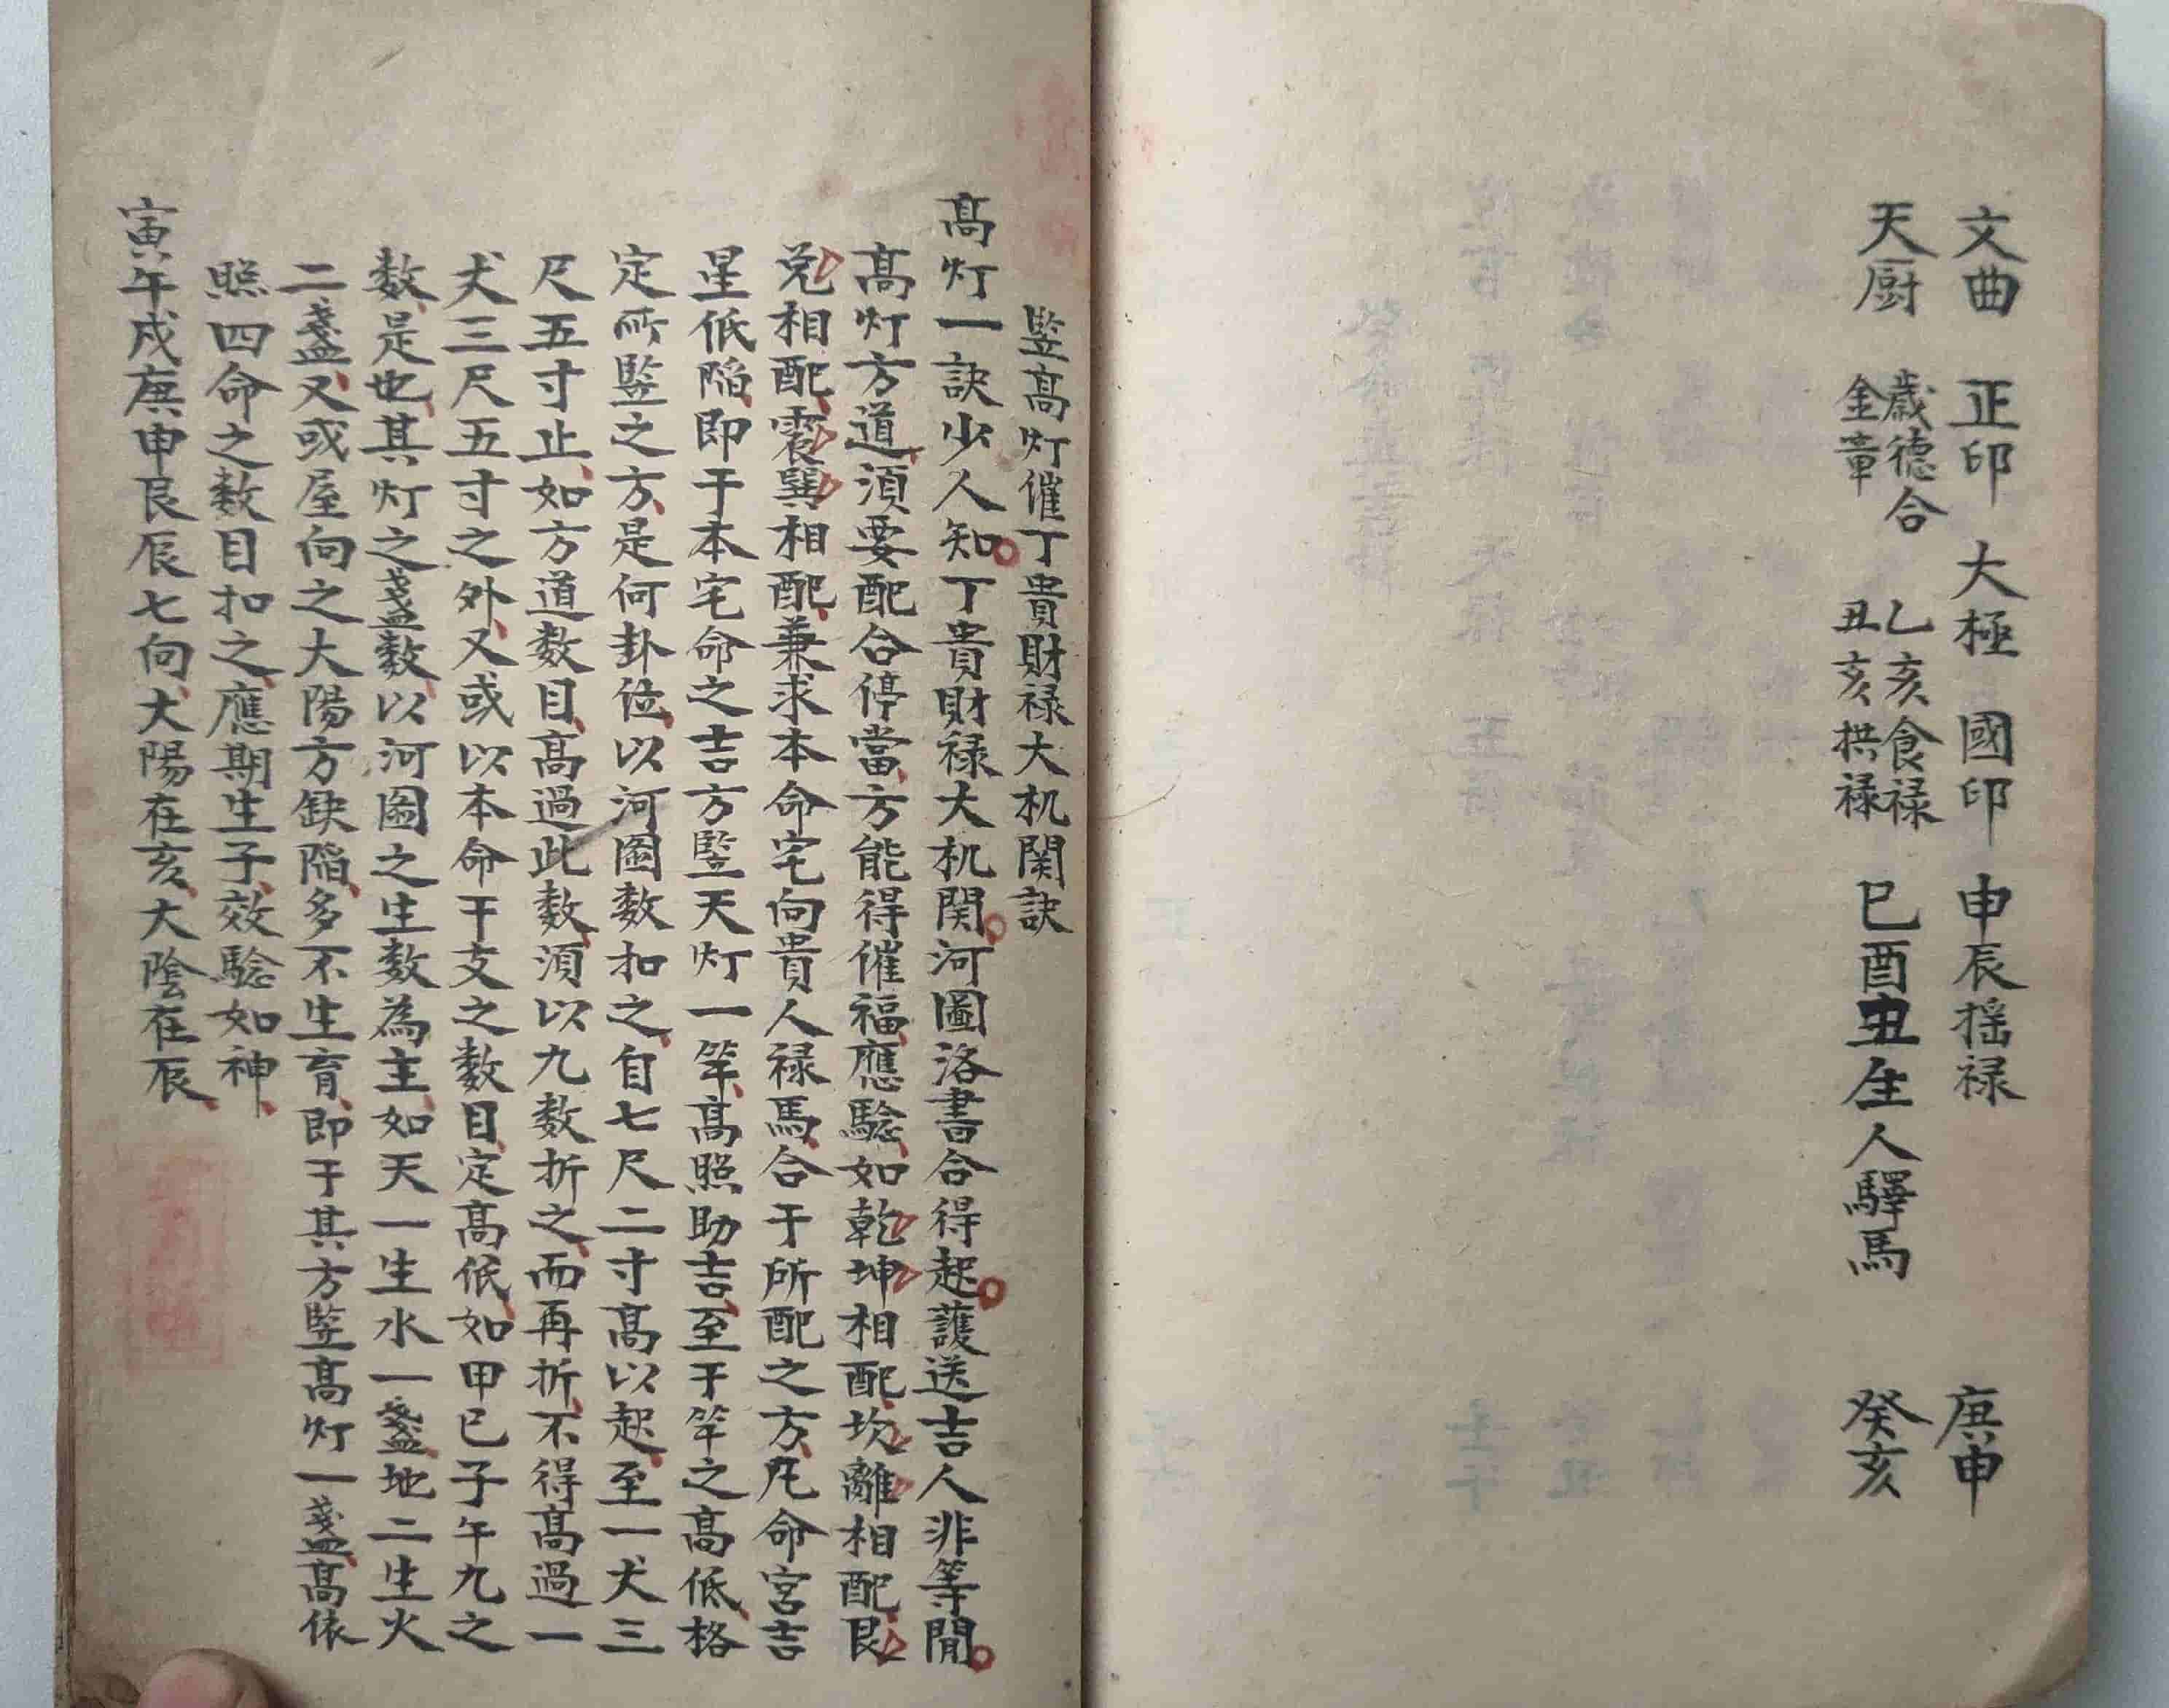 文曲 正印 大極 國印 申辰揺禄 庚申
天厨 歳德合 金章 乙亥食禄 丑亥拱禄 巳酉丑生人驛馬 癸亥
竪髙灯催丁貴財禄大机関訣
髙灯一訣少人知丁貴財禄大机関河圖洛書合得起護送吉人非等閒
髙灯方道須要配合停當方能得催福應驗如乾坤相配坎離相配艮
兌相配震巽相配兼求本命宅向貴人禄馬合于所配之方凡命宮吉
星低陷即于本宅命之吉方竪天灯一竿髙照助吉至于竿之髙低格
定所竪之方是何卦位以河圖数扣之自七尺二寸髙以起至一丈三
尺五寸止如方道数目髙過此数須以九数折之而再折不得髙過一
丈三尺五寸之外又或以本命干支之数目定髙低如甲己子午九之
数是也其灯之盞数以河圖之生数為主如天一生水一盞地二生火
二盞又或屋向之大陽方缺陷多不生育即于其方竪髙灯一盞髙依
照四命之数目扣之應期生子效驗如神
寅午戌庚申艮辰七向大陽在亥大陰在辰